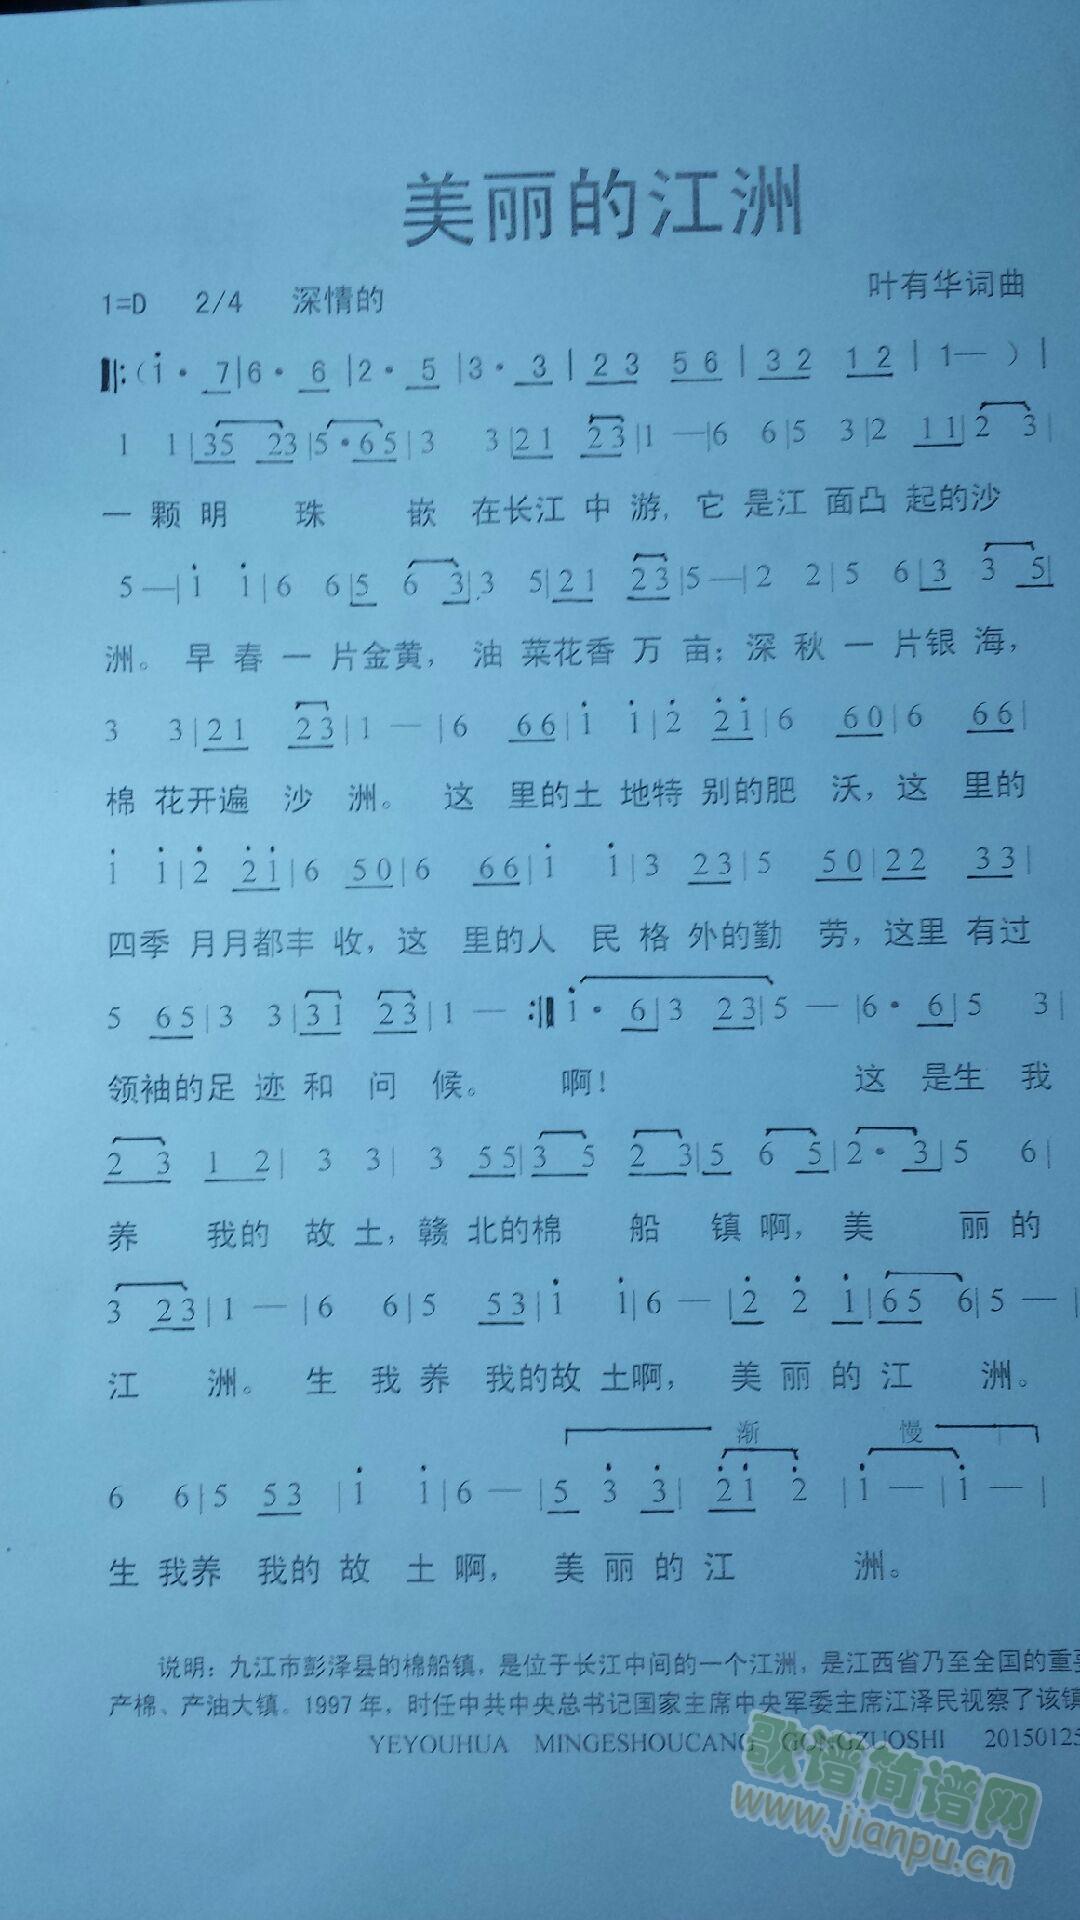 美丽的江洲
1=D 2/4 深情的 叶有华词曲
‖:(i· 7|6· 6|2· 5|3· 3|23 56|32 12|1—)|
1 1|35 23|5·65|3 3|21 23|1 —|6 6|5 3|2 11|2 3|
一颗明 珠 嵌 在长江中游,它是江面凸起的沙
5—|i i|6 6|5 6 3|3 5|21 23|5—|2 2|5 6|3 3 5|
洲。早春一片金黄,油菜花香万亩;深秋一片银海,
3 3|21 23|1 —|6 66|i i|2 2i|6 60|6 66|
棉花开遍 沙 洲。 这 里的土地特别的肥 沃,这 里的
i i|2 2i|6 50|6 66|i i|3 23|5 50|22 33|
四季月月都丰收,这 里的人 民格外的勤 劳,这里有过
5 65|3 3|31 23|1 — :‖i· 6|3 23|5 —|6· 6|5 3|
领袖的足迹和 问 候。 啊! 这 是生 我
2 3 1 2| 3 3| 3 55|3 5 2 3|5 6 5|2· 3|5 6|
养 我的 故土,赣北的棉 船 镇啊,美 丽的
3 23|1 —|6 6|5 53|i i|6 —|2 2 i|65 6|5 —|
江 洲。 生 我养 我的故土啊, 美丽的江 洲。
渐 慢
6 6|5 53 |i i|6 —|5 3 3| 2i 2 |i —|i —|
生我养 我的故 土啊, 美丽的江 洲。
说明:九江市彭泽县的棉船镇,是位于长江中间的一个江洲,是江西省乃至全国的重要
产棉、产油大镇。1997年,时任中共中央总书记国家主席中央军委主席江泽民视察了该镇
YEYOUHUA MINGESHOUCANG GONGZUOSHI 20150125
歌谱简谱网
www.jianpu.cn